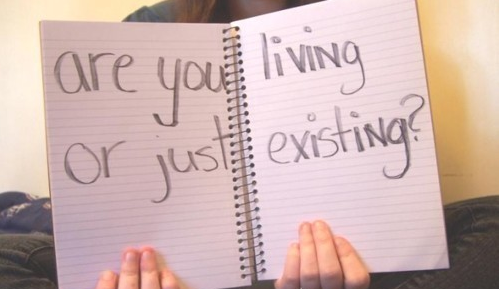 are you living
or just existing?